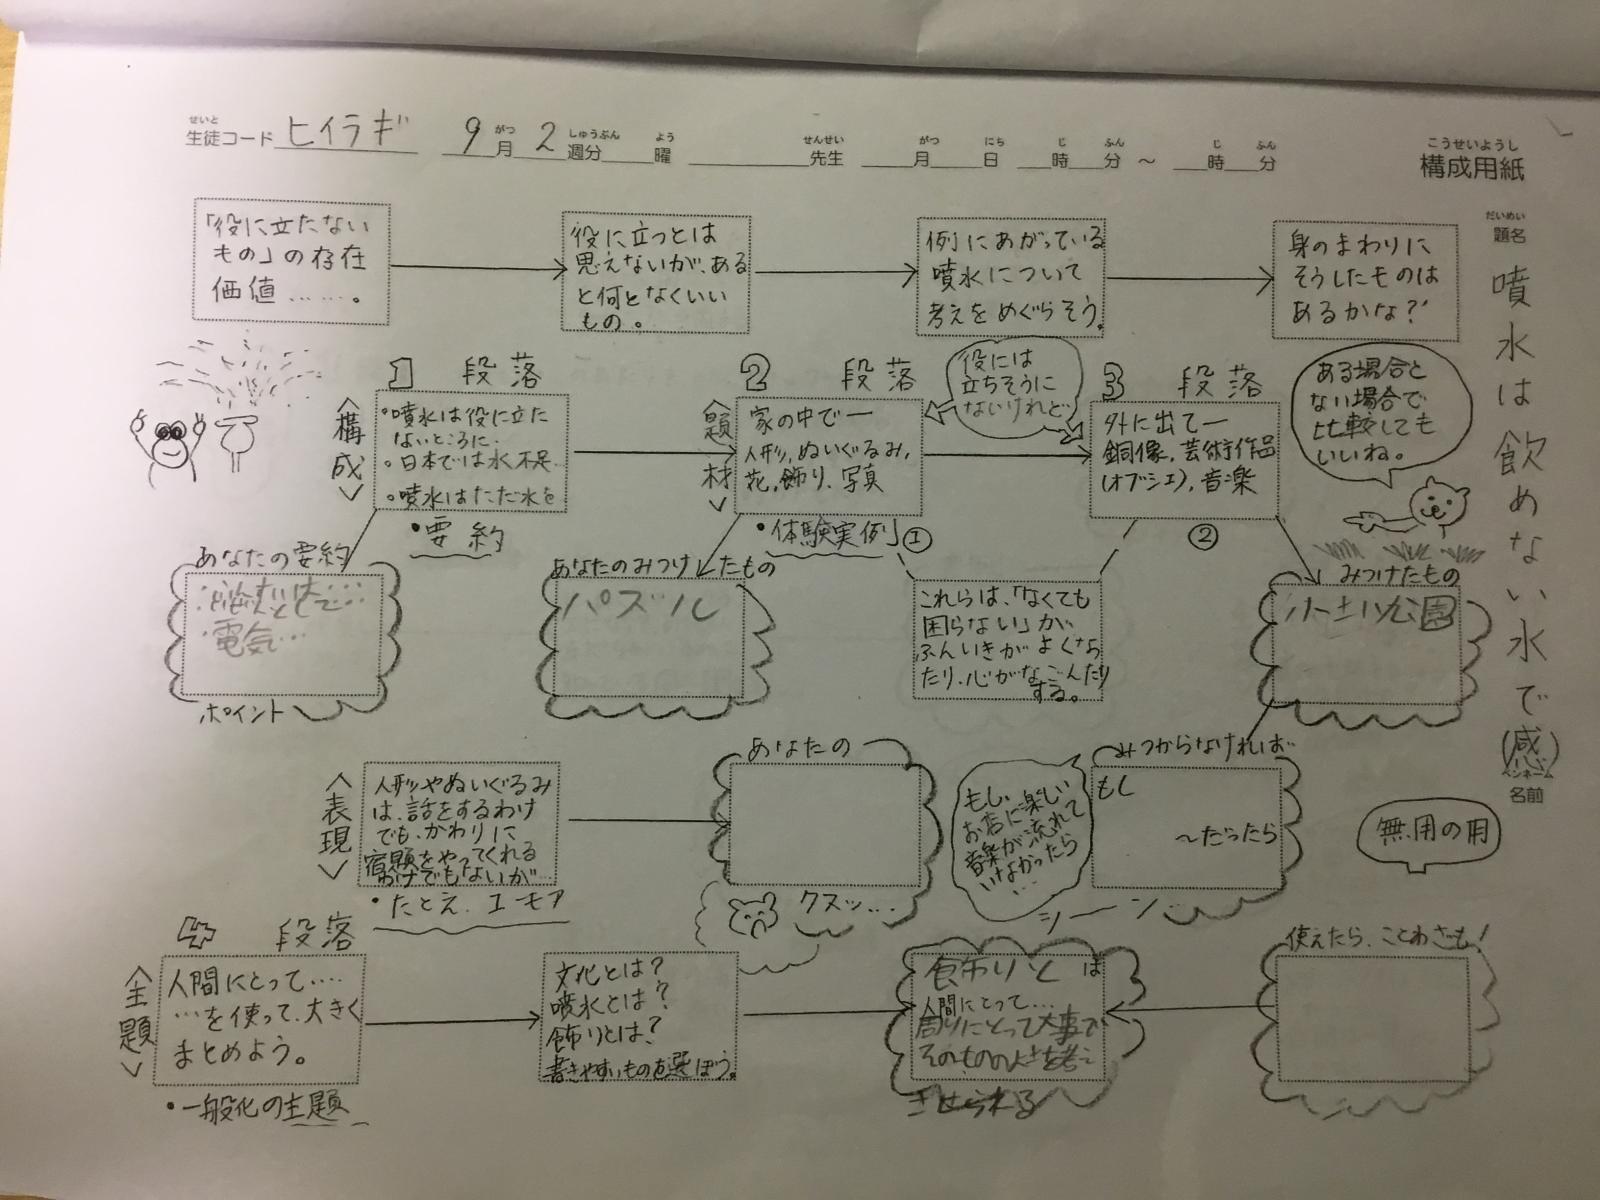 せいと
生徒コード ヒイラギ 9月 2週分 曜 先生 月 日 時 分 ～ 時 分
がつ しゅうぶん よう せんせい がつ にち じ ふん じ ふん
こうせいようし
構成用紙
だいめい
題名
噴水は飲めない水で(感)
ペンネーム
名前
「役に立たない
もの」の存在
価値……。
役に立つとは
思えないが、ある
と何となくいい
もの。
例にあがっている
噴水について
考えをめぐらそう。
身のまわりに
そうしたものは
あるかな？
1 段落
〈構成〉
・噴水は役に立た
ないところに
。日本では水不足
。噴水はただ水を
・要約
2 段落
〈題材〉
家の中で―
人形、ぬいぐるみ、
花、飾り、写真
・体験実例」①
役には
立ちそうに
ないけれど…
3 段落
外に出て―
銅像、芸術作品
(オブジェ)、音楽
②
ある場合と
ない場合で
比較しても
いいね。
あなたの要約
電気…
ポイント
あなたのみつけたもの
パズル
これらは、「なくても
困らない」が、
ふんいきがよくなっ
たり、心がなごんだり
する。
みつけたもの
公園
〈表現〉
人形やぬいぐるみ
は、話をするわけ
でも、かわりに
宿題をやってくれる
わけでもないが…
・たとえ、ユーモア
あなたの
クスッ…
もし、
お店に楽しい
音楽が流れて
いなかったら
…
みつからなければ…
もし
～だったら
シーーン…
無用の用
4 段落
〈主題〉
人間にとって……
…を使って、大きく
まとめよう。
・一般化の主題
文化とは？
噴水とは？
飾りとは？
書きやすいものを選ぼう。
飾りとは
人間にとって…
周りにとって大事で
そのもののよさを考え
させられる
使えたら、ことわざも！